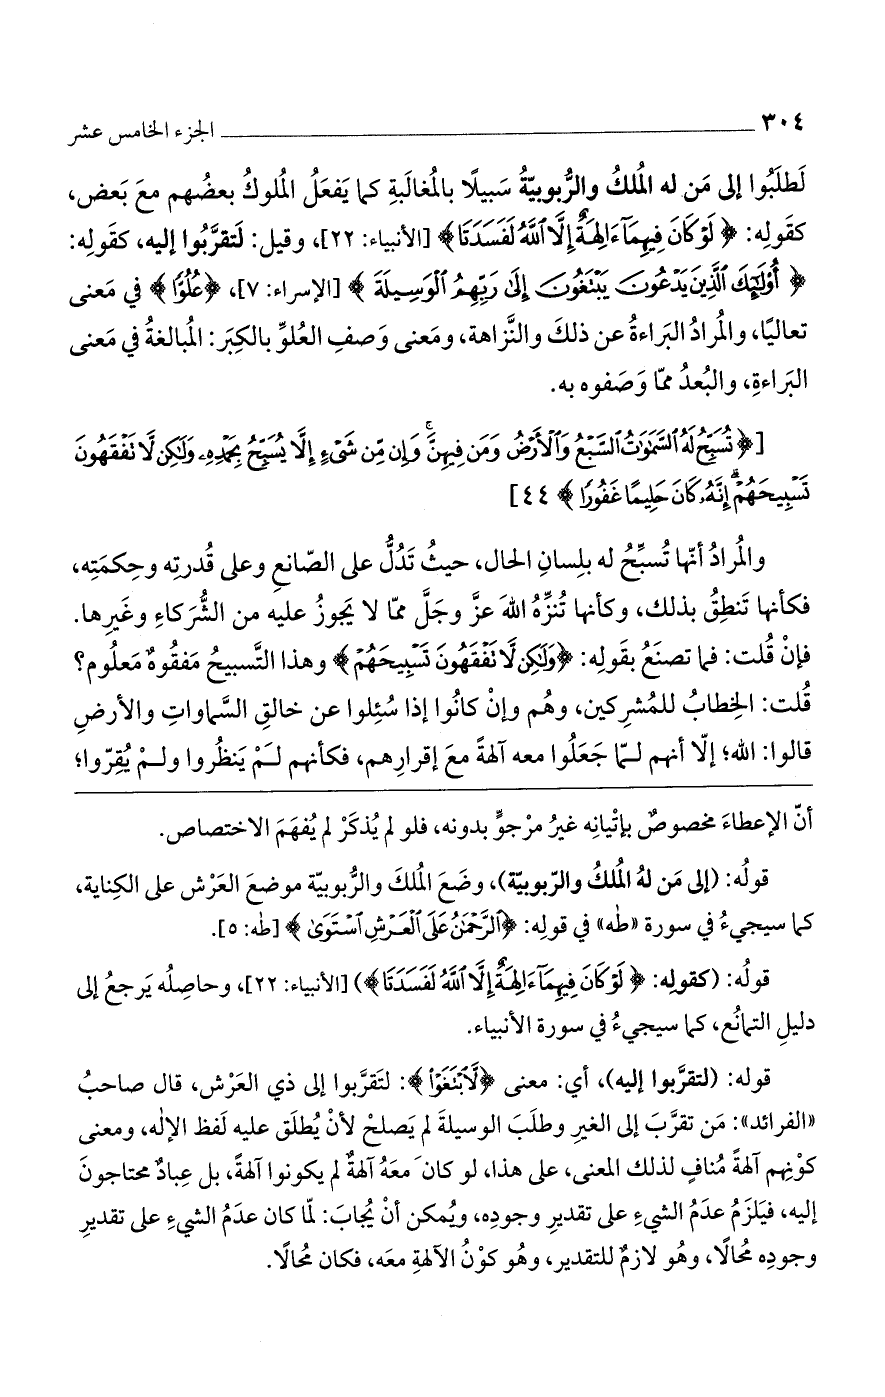 ٣٠٤ الجزء الخامس عشر
لَطلَبُوا إلى مَن له المُلكُ والرُّبوبيّةُ سَبيلًا بالمُغالَبةِ كما يَفعَلُ المُلوكُ بعضُهم معَ بَعض،
كقَولِه: ﴿لَوْ كَانَ فِيهِمَآ ءَالِهَةٌ إِلَّا ٱللَّهُ لَفَسَدَتَا﴾ [الأنبياء: ٢٢]، وقيل: لَتقرَّبُوا إليه، كقَولِه:
﴿أُوْلَٰٓئِكَ ٱلَّذِينَ يَدْعُونَ يَبْتَغُونَ إِلَىٰ رَبِّهِمُ ٱلْوَسِيلَةَ﴾ [الإسراء: ٧]، ﴿عُلُوًّا﴾ في مَعنى
تعاليًا، والمُرادُ البَراءةُ عن ذلكَ والنَّزاهة، ومَعنى وَصفِ العُلوِّ بالكِبَر: المُبالغةُ في مَعنى
البَراءةِ، والبُعدُ ممّا وَصَفوه به.
[﴿تُسَبِّحُ لَهُ ٱلسَّمَٰوَٰتُ ٱلسَّبْعُ وَٱلْأَرْضُ وَمَن فِيهِنَّ ۚ وَإِن مِّن شَىْءٍ إِلَّا يُسَبِّحُ بِحَمْدِهِۦ وَلَٰكِن لَّا تَفْقَهُونَ
تَسْبِيحَهُمْ ۗ إِنَّهُۥ كَانَ حَلِيمًا غَفُورًا﴾ ٤٤]
والمُرادُ أنّها تُسبِّحُ له بلِسانِ الحال، حيثُ تَدُلُّ على الصّانعِ وعلى قُدرتِه وحِكمَتِه،
فكأنها تَنطِقُ بذلك، وكأنها تُنزِّهُ اللهَ عزَّ وجَلَّ ممّا لا يَجوزُ عليه من الشُّرَكاءِ وغَيرِها.
فإنْ قُلت: فما تصنَعُ بقَولِه: ﴿وَلَٰكِن لَّا تَفْقَهُونَ تَسْبِيحَهُمْ﴾ وهذا التَّسبيحُ مَفقُوهٌ مَعلُوم؟
قُلت: الخِطابُ للمُشرِكين، وهُم وإنْ كانُوا إذا سُئِلوا عن خالقِ السَّماواتِ والأرضِ
قالوا: الله؛ إلّا أنهم لـمّا جَعَلُوا معه آلهةً معَ إقرارِهم، فكأنهم لـمْ يَنظُروا ولـمْ يُقِرّوا؛
أنّ الإعطاءَ مخصوصٌ بإتْيانِه غيرُ مرْجوٍّ بدونه، فلو لم يُذكَرْ لم يُفهَمَ الاختصاص.
قولُه: (إلى مَن لهُ المُلكُ والرّبوبيّة)، وضَعَ المُلكَ والرُّبوبيّة موضعَ العَرْش على الكِناية،
كما سيجيءُ في سورة «طٰه» في قولِه: ﴿ٱلرَّحْمَٰنُ عَلَى ٱلْعَرْشِ ٱسْتَوَىٰ﴾ [طٰه: ٥].
قولُه: (كقولِه: ﴿لَوْ كَانَ فِيهِمَآ ءَالِهَةٌ إِلَّا ٱللَّهُ لَفَسَدَتَا﴾) [الأنبياء: ٢٢]، وحاصِلُه يَرجعُ إلى
دليلِ التمانُع، كما سيجيءُ في سورة الأنبياء.
قوله: (لتقرَّبوا إليه)، أي: معنى ﴿لَّٱبْتَغَوْا۟﴾: لتَقرَّبوا إلى ذي العَرْش، قال صاحبُ
«الفرائد»: مَن تقرَّبَ إلى الغيرِ وطلَبَ الوسيلةَ لم يَصلحْ لأنْ يُطلَق عليه لَفظ الإلٰه، ومعنى
كوْنِهم آلهةً مُنافٍ لذلك المعنى، على هذا، لو كان َمعَهُ آلهةٌ لم يكونوا آلهةً، بل عِبادٌ محتاجونَ
إليه، فيَلزَمُ عدَمُ الشيءِ على تقديرِ وجودِه، ويُمكن أنْ يُجابَ: لمّا كان عدَمُ الشيءِ على تقديرِ
وجودِه مُحالًا، وهُو لازمٌ للتقدير، وهُو كوْنُ الآلهةِ معَه، فكان مُحالًا.